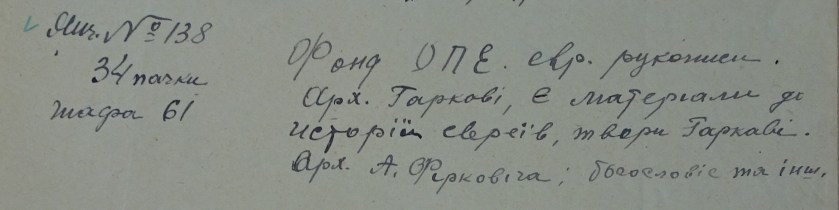 Ящ. № 138
34 пачки
шафа 61
Фонд ОПЕ. євр. рукописи.
Арх. Гаркаві, є матеріали до
історіїи євреїв, твори Гаркаві.
Арх. А. Фірковіча; богословіє та інш.